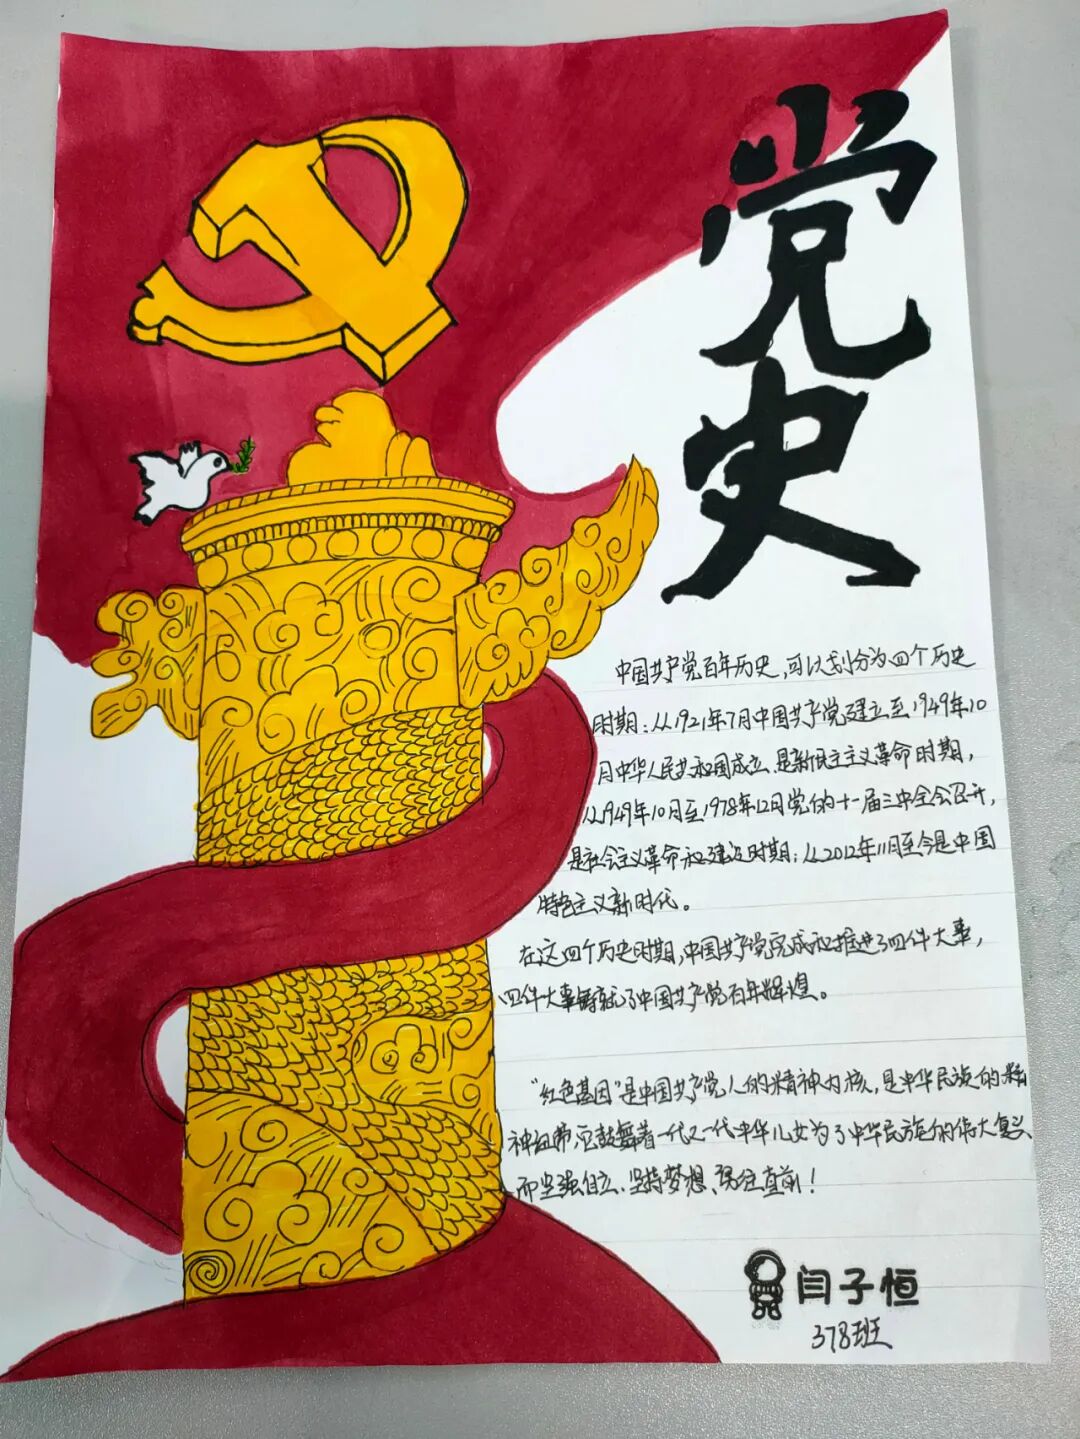 党史
中国共产党百年历史，可以划分为四个历史
时期：从1921年7月中国共产党建立至1949年10
月中华人民共和国成立、是新民主主义革命时期，
从1949年10月至1978年12月党的十一届三中全会召开，
是社会主义革命和建设时期；从2012年11月至今是中国
特色主义新时代。
在这四个历史时期，中国共产党完成和推进了四件大事，
四件大事铸就了中国共产党百年辉煌。
“红色基因”是中国共产党人的精神内核，是中华民族的精
神纽带 鼓舞着一代又一代中华儿女为了中华民族的伟大复兴
而坚强自立、坚持梦想、勇往直前！
闫子恒
378班